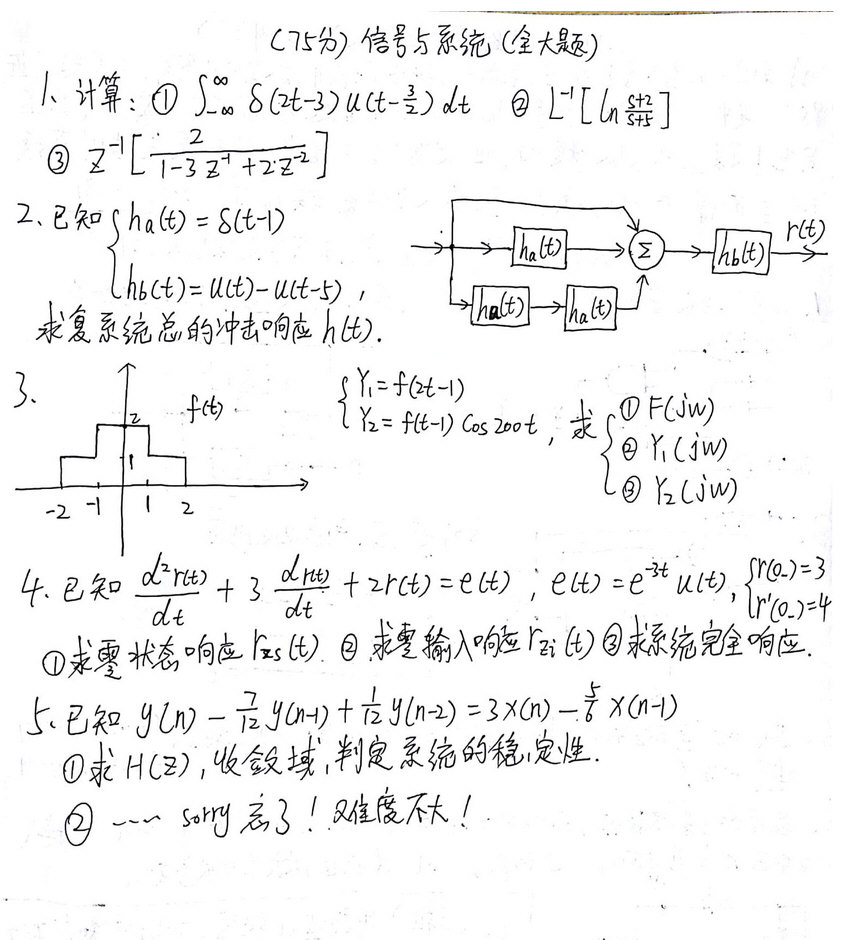 (75分) 信号与系统 (全大题)
1、计算: ① ∫_{-∞}^{∞} δ(2t-3) u(t-3/2) dt ② L⁻¹[ln (s+2)/(s+5)]
③ Z⁻¹[2/(1-3Z⁻¹+2Z⁻²)]
2、已知 { ha(t) = δ(t-1)
hb(t) = u(t)-u(t-5) ,
求复系统总的冲击响应 h(t).
ha(t) Σ hb(t) r(t)
ha(t) ha(t)
3.
f(t)
2
1
-2 -1 1 2
{ Y₁ = f(2t-1)
Y₂ = f(t-1) cos200t , 求 { ① F(jw)
② Y₁(jw)
③ Y₂(jw)
4. 已知 d²r(t)/dt + 3 dr(t)/dt + 2r(t) = e(t) ; e(t) = e^{-3t} u(t), { r(0-)=3
r'(0-)=4
①求零状态响应 rzs(t). ② 求零输入响应 rzi(t) ③求系统完全响应.
5、已知 y(n) - 7/12 y(n-1) + 1/12 y(n-2) = 3x(n) - 5/6 x(n-1)
①求 H(Z), 收敛域, 判定系统的稳定性.
② ---- sorry 忘了! 难度不大!